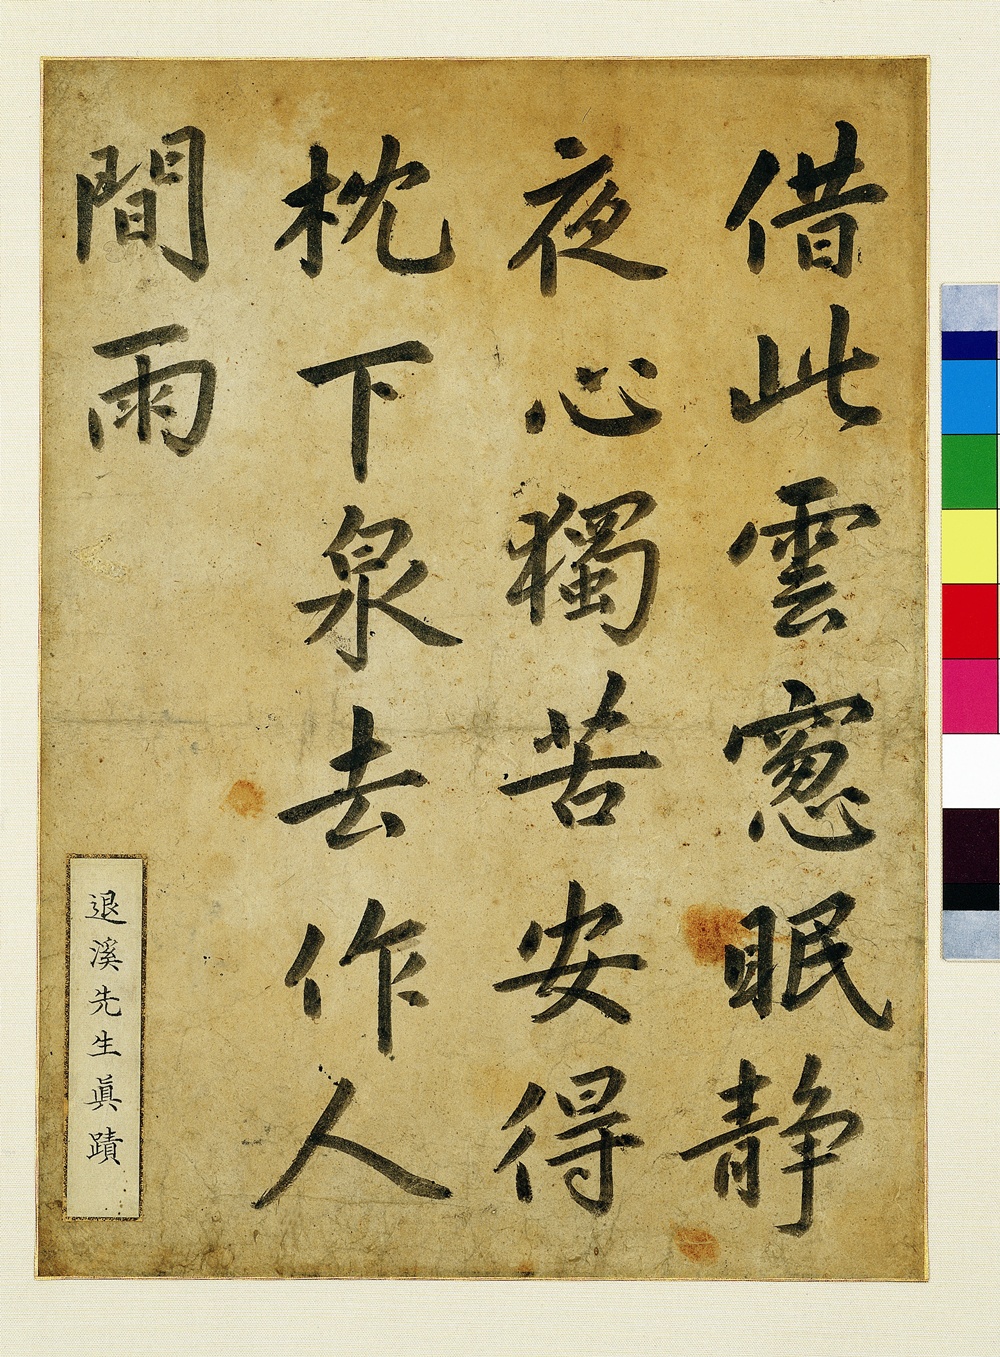 借此雲窓眠静
夜心獨苦安得
枕下泉去作人
間雨
退溪先生眞蹟